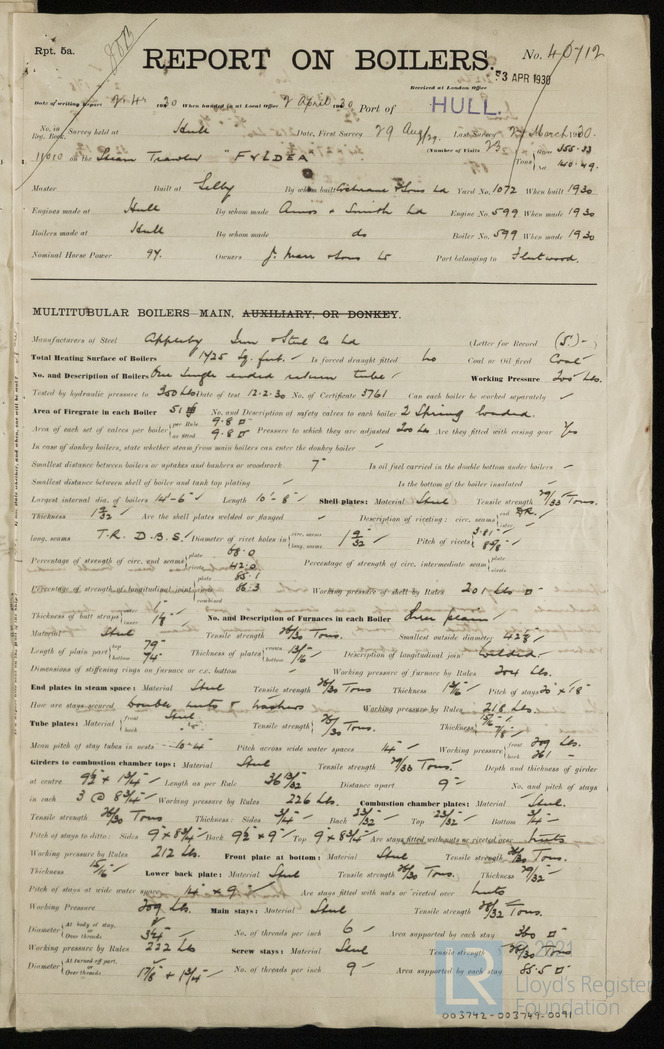 Rpt. 5a.
REPORT ON BOILERS.
No. 40712
3 APR 1930
Received at London Office
Date of writing Report 2.4.1930 When handed in at Local Office 2 April 1930 Port of HULL.
No. in Reg. Book. Survey held at Hull Date, First Survey 29 Aug/29. Last Survey March 1930.
(Number of Visits 23
11010 on the Steam Trawler "FYLDEA" Tons Gross 355.33 Net 140.49.
Master Built at Selby By whom built Cochrane & Sons Ld Yard No. 1072 When built 1930
Engines made at Hull By whom made Amos & Smith Ld Engine No. 599 When made 1930
Boilers made at Hull By whom made do Boiler No. 599 When made 1930
Nominal Horse Power 97. Owners J. Marr & Sons Ld Port belonging to Fleetwood.
MULTITUBULAR BOILERS—MAIN, AUXILIARY, OR DONKEY.
Manufacturers of Steel Appleby Iron & Steel Co Ld (Letter for Record (S) )
Total Heating Surface of Boilers 1425 sq. feet. Is forced draught fitted No Coal or Oil fired Coal
No. and Description of Boilers One single ended return tube Working Pressure 200 lbs.
Tested by hydraulic pressure to 350 lbs Date of test 12.2.30 No. of Certificate 3761 Can each boiler be worked separately
Area of Firegrate in each Boiler 51 No. and Description of safety valves to each boiler 2 Spring loaded.
Area of each set of valves per boiler per Rule 9.8 as fitted 9.8 Pressure to which they are adjusted 200 lbs Are they fitted with easing gear Yes
In case of donkey boilers, state whether steam from main boilers can enter the donkey boiler
Smallest distance between boilers or uptakes and bunkers or woodwork 7" Is oil fuel carried in the double bottom under boilers
Smallest distance between shell of boiler and tank top plating Is the bottom of the boiler insulated
Largest internal dia. of boilers 14'-6" Length 10'-8" Shell plates: Material Steel Tensile strength 29/33 Tons.
Thickness 1 5/32 Are the shell plates welded or flanged Description of riveting: circ. seams end D.R. inter.
long. seams T.R. D.B.S. Diameter of rivet holes in circ. seams long. seams 1 9/32 Pitch of rivets 3.81 8 5/8
Percentage of strength of circ. end seams plate 68.0 rivets 42.0 Percentage of strength of circ. intermediate seam plate rivets
Percentage of strength of longitudinal joint plate 85.1 rivets 86.3 combined Working pressure of shell by Rules 201 lbs
Thickness of butt straps outer inner No. and Description of Furnaces in each Boiler Three plain
Material Steel Tensile strength 26/30 Tons. Smallest outside diameter 42 5/8
Length of plain part top 79 bottom 74 Thickness of plates crown bottom 13/16 Description of longitudinal joint welded.
Dimensions of stiffening rings on furnace or c.c. bottom Working pressure of furnace by Rules 204 lbs.
End plates in steam space: Material Steel Tensile strength 26/30 Tons Thickness 15/16 Pitch of stays 20 x 18
How are stays secured Double nuts & washers Working pressure by Rules 218 lbs.
Tube plates: Material front back Steel Tensile strength 26/30 Tons. Thickness 15/16 7/8
Mean pitch of stay tubes in nests 10.4 Pitch across wide water spaces 14 Working pressure front 209 lbs. back 261
Girders to combustion chamber tops: Material Steel Tensile strength 29/33 Tons. Depth and thickness of girder
at centre 9 1/2 x 1 3/4 Length as per Rule 36 13/32 Distance apart 9 No. and pitch of stays
in each 3 @ 8 3/4 Working pressure by Rules 226 lbs. Combustion chamber plates: Material Steel.
Tensile strength 26/30 Tons Thickness: Sides 3/4 Back 23/32 Top 23/32 Bottom 3/4
Pitch of stays to ditto: Sides 9 x 8 3/4 Back 9 1/2 x 9 Top 9 x 8 3/4 Are stays fitted with nuts or riveted over nuts
Working pressure by Rules 212 lbs. Front plate at bottom: Material Steel Tensile strength 26/30 Tons.
Thickness 15/16 Lower back plate: Material Steel Tensile strength 26/30 Tons. Thickness 29/32
Pitch of stays at wide water space 14 x 9 Are stays fitted with nuts or riveted over nuts
Working Pressure 209 lbs. Main stays: Material Steel Tensile strength 28/32 Tons.
Diameter At body of stay, or Over threads 3 1/4 No. of threads per inch 6 Area supported by each stay 360
Working pressure by Rules 222 lbs Screw stays: Material Steel Tensile strength 26/30 Tons
Diameter At turned off part, or Over threads 1 7/8 & 1 3/4 No. of threads per inch 9 Area supported by each stay 85.5
© 2021
LR
Lloyd's Register
Foundation
003742-003749-0091